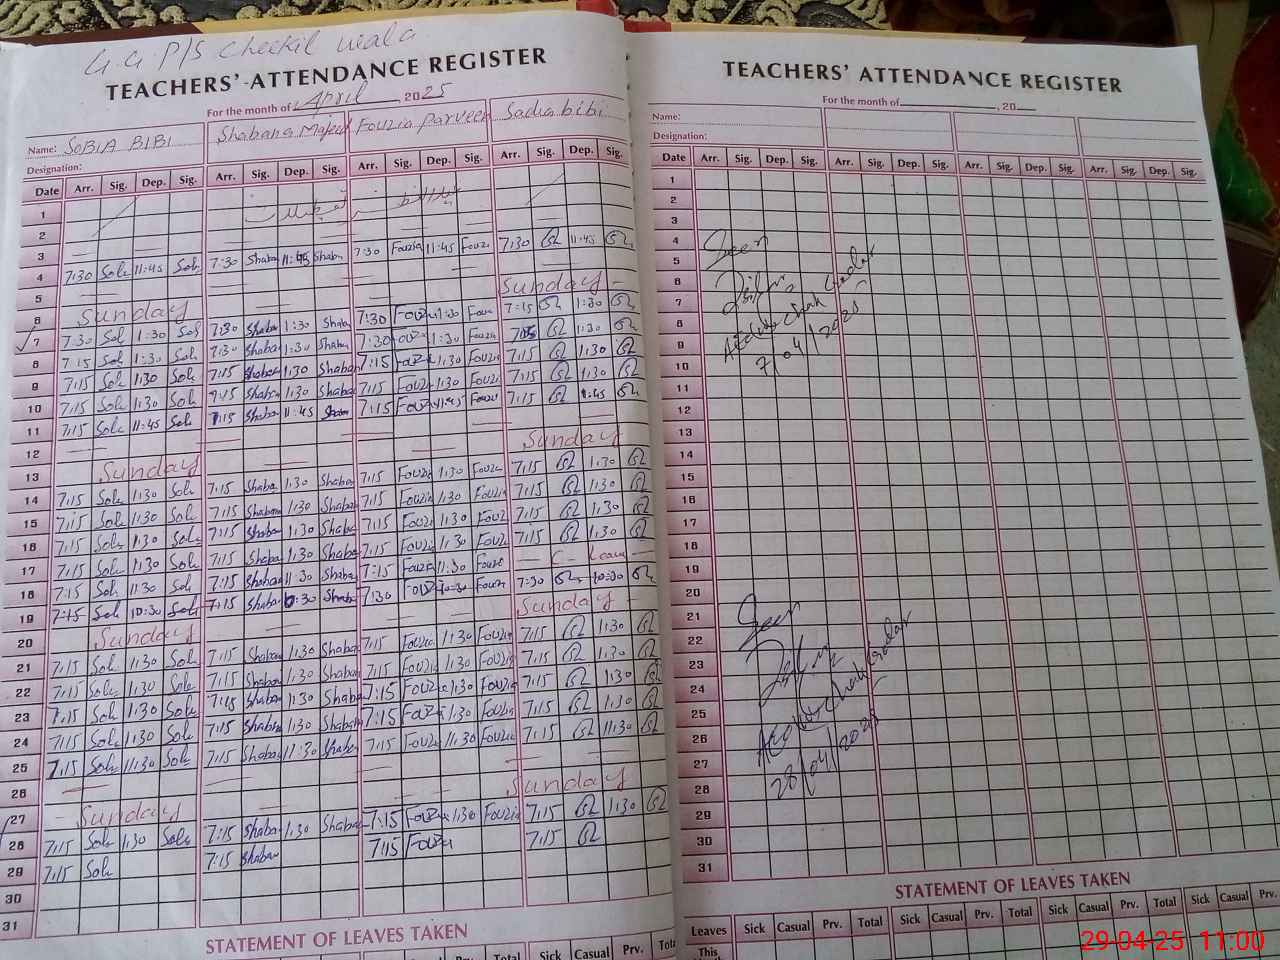 G.G P/S Cheekil wala
TEACHERS' ATTENDANCE REGISTER
For the month of April, 2025
Name: SOBIA BIBI Shabana Majeed Fouzia Parveen Sadia bibi
Designation:
Date Arr. Sig. Dep. Sig. Arr. Sig. Dep. Sig. Arr. Sig. Dep. Sig. Arr. Sig. Dep. Sig.
1
2
3
4 7:30 Sob 11:45 Sob 7:30 Shaban 11:45 Shaban 7:30 Fouzia 11:45 Fouzi 7:30 11:45
5
6 Sunday Sunday
7 7:30 Sob 1:30 Sob 7:30 Shaba 1:30 Shaba 7:30 Fouzi 1:30 Fouzi 7:15 1:30
8 7:15 Sob 1:30 Sob 7:30 Shaban 1:30 Shaba 7:30 Fouzi 1:30 Fouzi 1:30
9 7:15 Sob 1:30 Sob 7:15 Shaban 1:30 Shaban 7:15 Fouzi 1:30 Fouzi 7:15 1:30
10 7:15 Sob 1:30 Sob 7:15 Shaban 1:30 Shaban 7:15 Fouzi 1:30 Fouzi 7:15 1:30
11 7:15 Sob 11:45 Sob 7:15 Shaban 11:45 Shaban 7:15 Fouzi 11:45 Fouzi 7:15
12
13 Sunday Sunday
14 7:15 Sob 1:30 Sob 7:15 Shaba 1:30 Shaban 7:15 Fouzia 1:30 Fouzi 7:15 1:30
15 7:15 Sob 1:30 Sob 7:15 Shaban 1:30 Shaban 7:15 Fouzi 1:30 Fouzi 7:15 1:30
16 7:15 Sob 1:30 Sob 7:15 Shaban 1:30 Shaban 7:15 Fouzi 1:30 Fouzi 7:15 1:30
17 7:15 Sob 1:30 Sob 7:15 Shaba 1:30 Shaban 7:15 Fouzi 1:30 Fouzi 7:15 1:30
18 7:15 Sob 11:30 Sob 7:15 Shaban 11:30 Shaba 7:15 Fouzi 11:30 Fouzi C- Leave
19 7:15 Sob 10:30 Sob 7:15 Shaba Shaba 7:30 Fouzi 10:30 Fouzi 7:30 10:30
20 Sunday Sunday
21 7:15 Sob 1:30 Sob 7:15 Shaban 1:30 Shaban 7:15 Fouzia 1:30 Fouzia 7:15 1:30
22 7:15 Sob 1:30 Sob 7:15 Shaban 1:30 Shaban 7:15 Fouzi 1:30 Fouzi 7:15 1:30
23 7:15 Sob 1:30 Sob 7:15 Shaban 1:30 Shaban 7:15 Fouzi 1:30 Fouzi 7:15 1:30
24 7:15 Sob 1:30 Sob 7:15 Shaban 1:30 Shaban 7:15 Fouzi 1:30 Fouzi 7:15 1:30
25 7:15 Sob 11:30 Sob 7:15 Shaban 11:30 Shaba 7:15 Fouzi 11:30 Fouzi 7:15 11:30
26
27 Sunday Sunday
28 7:15 Sob 1:30 Sob 7:15 Shaba 1:30 Shaban 7:15 Fouzi 1:30 Fouzia 7:15 1:30
29 7:15 Sob 7:15 Shaban 7:15 Fouzi 7:15
30
31
STATEMENT OF LEAVES TAKEN
Sick Casual Prv.
TEACHERS' ATTENDANCE REGISTER
For the month of , 20
Name:
Designation:
Date Arr. Sig. Dep. Sig. Arr. Sig. Dep. Sig. Arr. Sig. Dep. Sig. Arr. Sig. Dep. Sig.
1
2
3
4 Seen
5
6
7
8 Chak Qadar
9 7/04/2025
10
11
12
13
14
15
16
17
18
19
20
21 Seen
22
23
24
25 Chak Qadar
26
27 28/04/2025
28
29
30
31
STATEMENT OF LEAVES TAKEN
Leaves Sick Casual Prv. Total Sick Casual Prv. Total Sick Casual Prv. Total Sick Casual Prv.
This
29-04-25 11:00